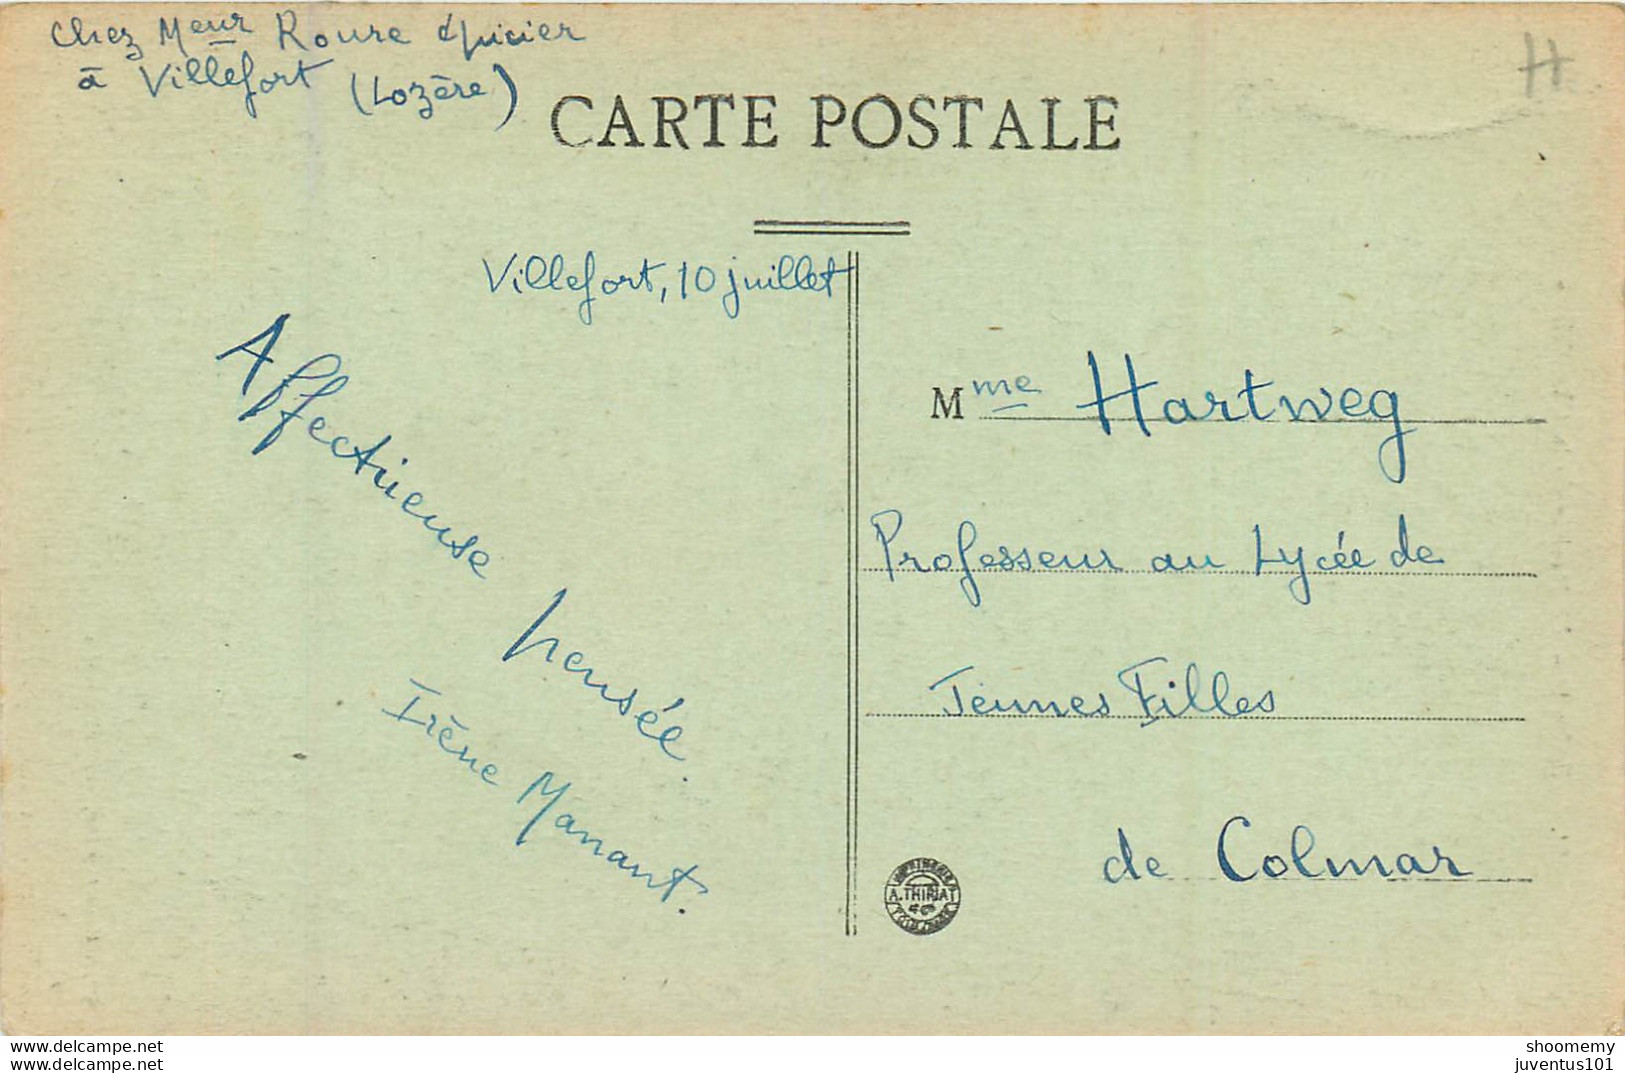 Chez Meur Roure épicier
à Villefort (Lozère)
H
CARTE POSTALE
Villefort, 10 juillet
Affectueuse pensée.
Irène Manant.
Mme Hartweg
Professeur au Lycée de
Jeunes Filles
de Colmar
A. THIRIAT
www.delcampe.net
www.delcampe.net
shoomemy
juventus101